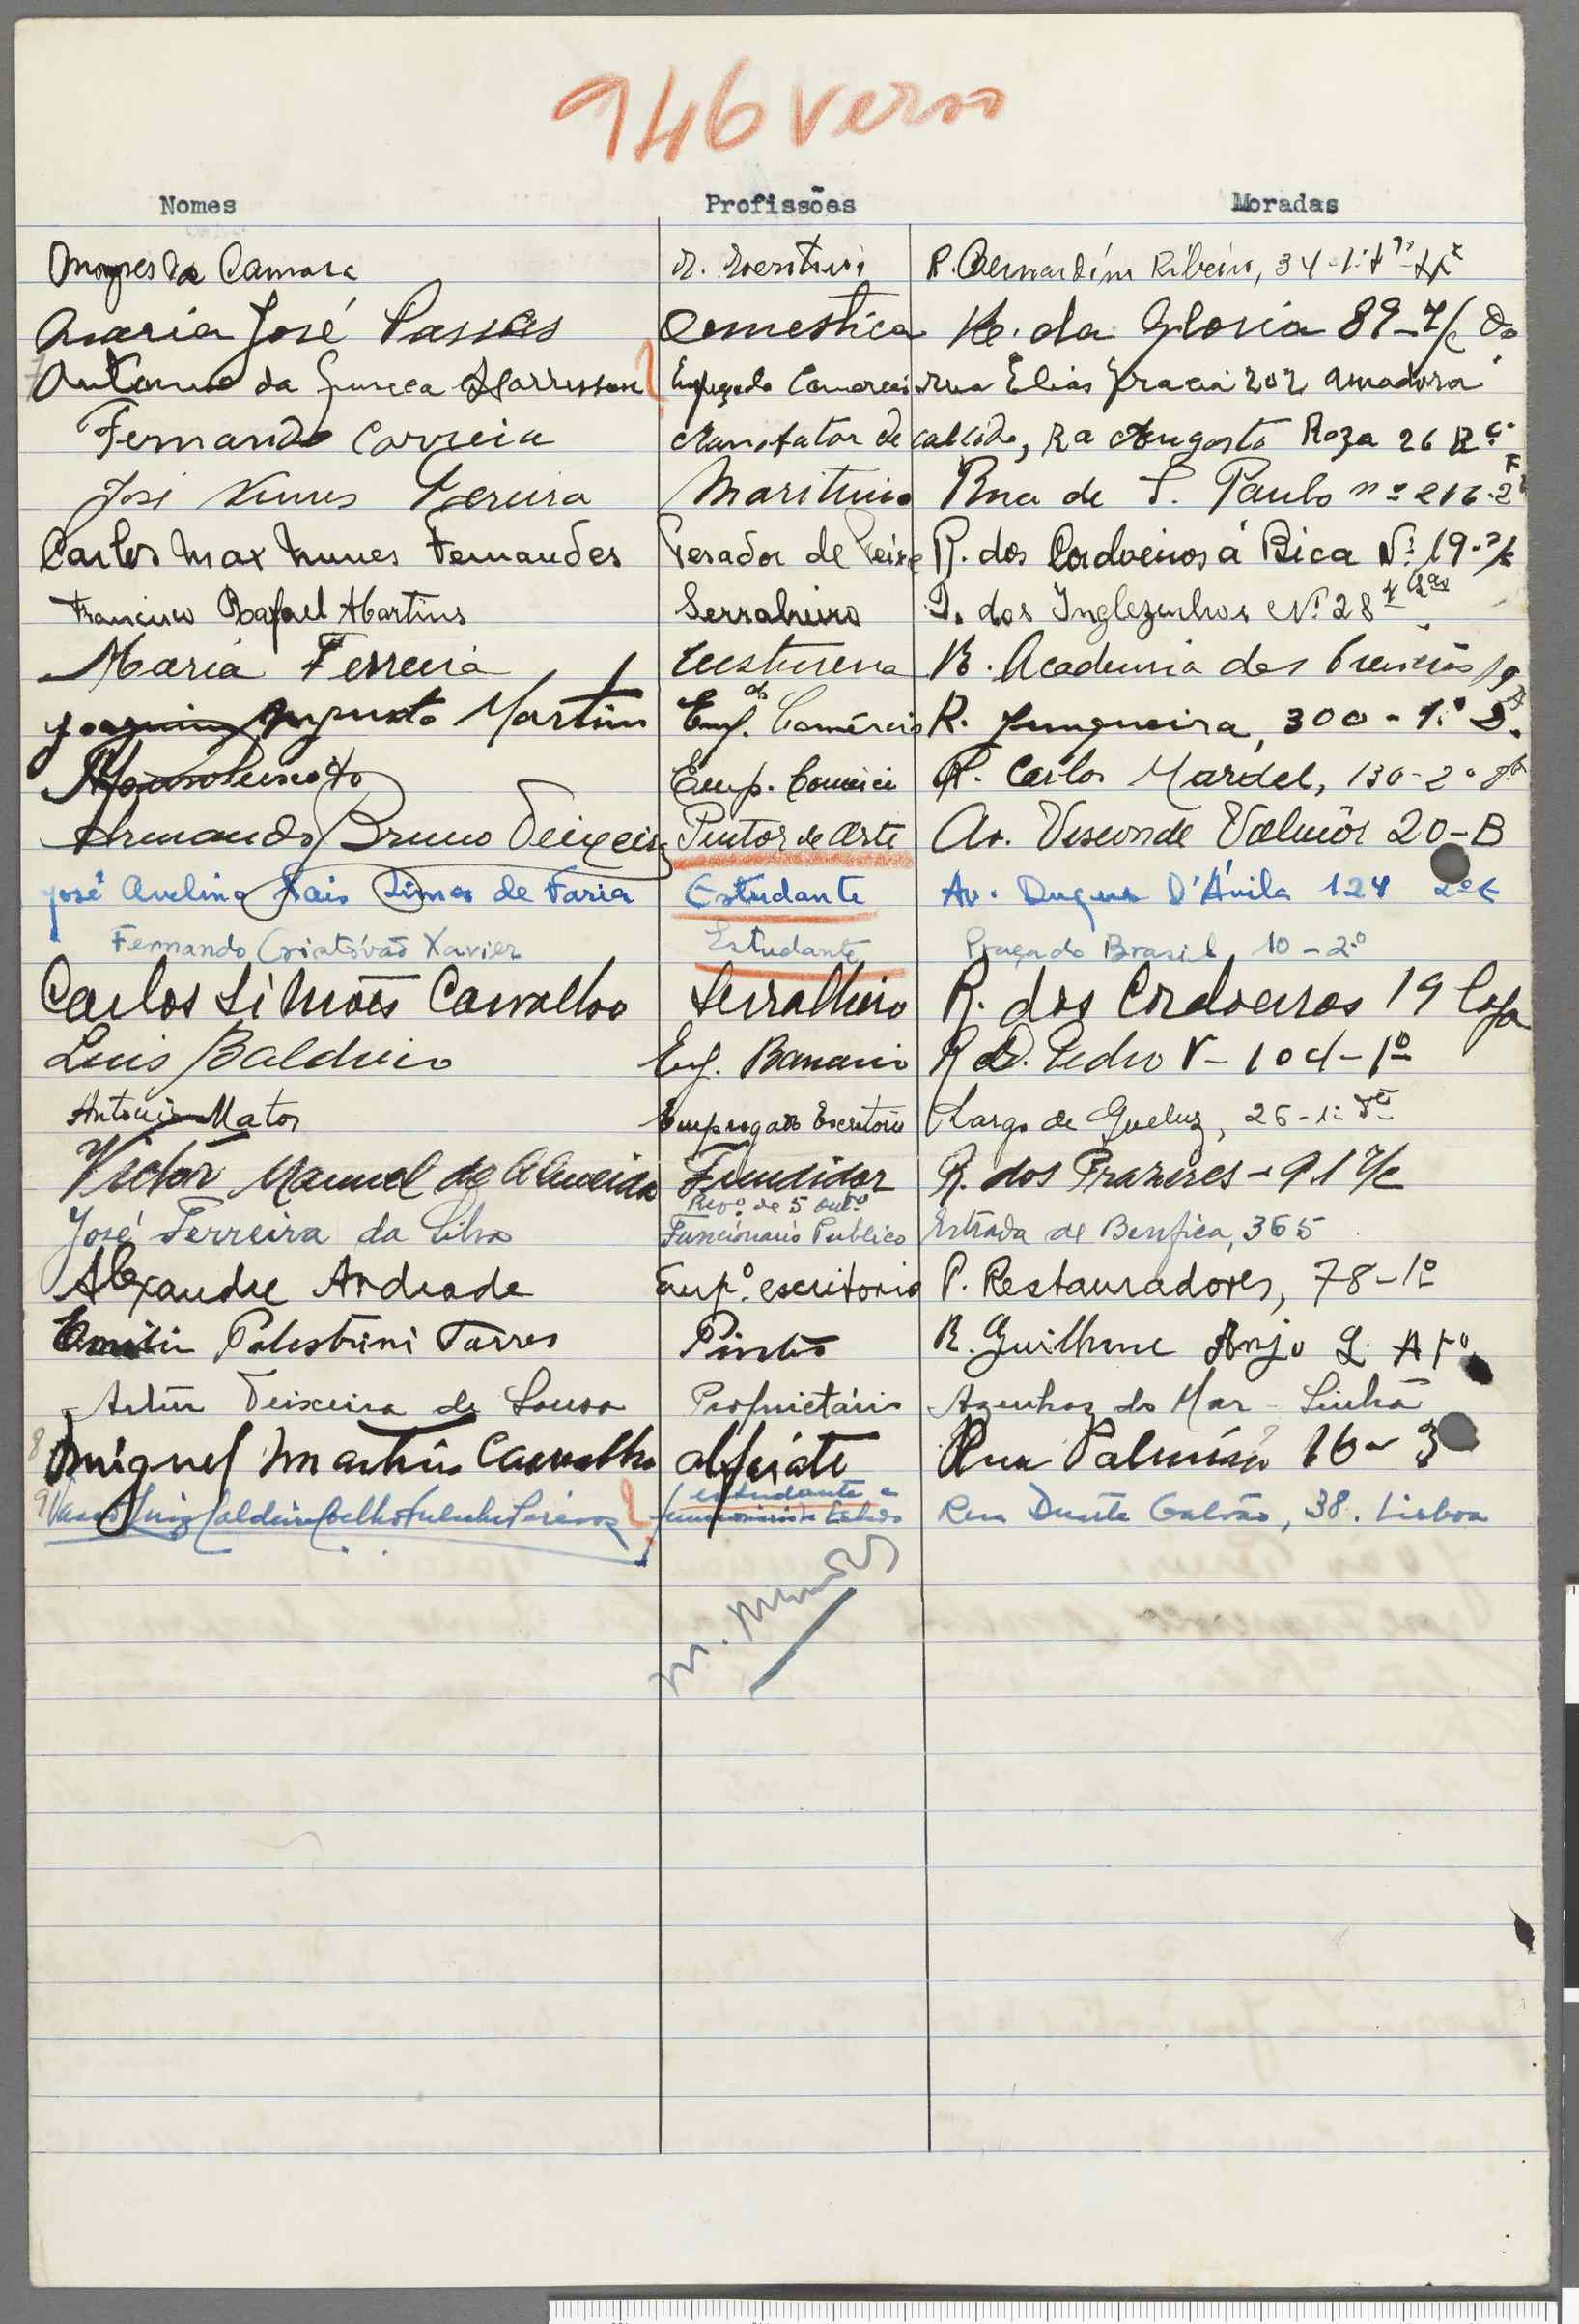 946 verso
Nomes Profissões Moradas
da Camara R. Bernardim Ribeiro, 34-1º
Maria José Passos Domestica R. da Gloria 89-r/c
da Comercio rua Elias Gracia 202 amadora
Fernando Correia Manofator de calcado, Ra Augosto Roza 26 R
José Nunes Pereira Maritimo Rua de S. Paulo nº 216-2º
Carlos Max Nunes Fernandes Pesador de Peixe R. dos Cordoeiros á Bica Nº 19-r/c
Francisco Rafael Martins Serralheiro T. dos Inglezinhos Nº 28
Maria Ferreira Custureira R. Academia das Ciencias 19
Joaquim Augusto Martins Emp. do Comércio R. Junqueira, 300-1º D.
Emp. Comércio R. Carlos Mardel, 130-2º
Armando Bruno Teixeira Pintor de Arte Av. Visconde Valmôr 20-B
José Avelino Pais Limas de Faria Estudante Av. Duque D'Ávila 124 2º E
Fernando Cristóvão Xavier Estudante Praça do Brasil 10-2º
Carlos Simões Carvalho Serralheiro R. dos Cordoeiros 19 Loja
Luis Balduino Emp. Bancario R D. Pedro V-104-1º
Antonio Matos Empregado Escritório Largo de Queluz, 26-1º
Victor Manuel de Almeida Fundidor R. dos Prazeres-91 r/c
Revº. de 5 Outº
José Ferreira da Silva Funcionario Publico Estrada de Benfica, 365
Alexandre Andrade Empº. escritorio P. Restauradores, 78-1º
Palestrini Torres Pintor R. Guilherme Anjo L. A
Artur Teixeira de Sousa Proprietário Azenhas do Mar - Sintra
8 Miguel Martins Carvalho Alfaiate Rua Palmira 16-3
estudante e
9 Luiz Caldeira Coelho funcionario Estado Rua Duarte Galvão, 38. Lisboa